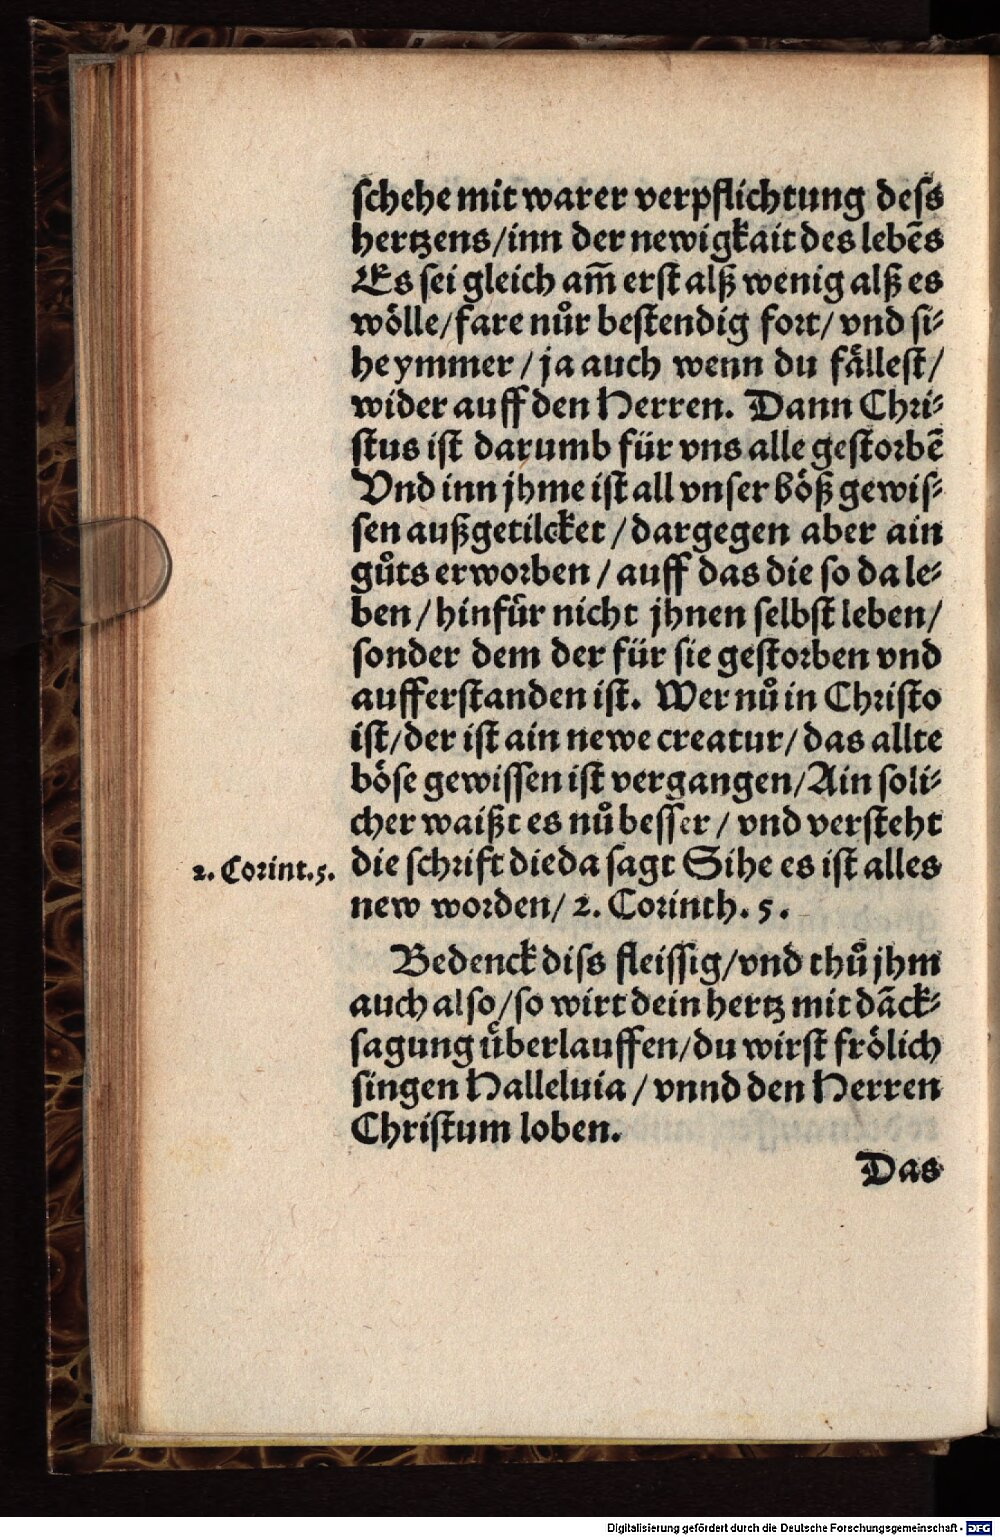 schehe mit warer verpflichtung dess
hertzens/inn der newigkait des lebēs
Es sei gleich am̄ erst alß wenig alß es
wölle/fare nůr bestendig fort/vnd si⸗
he ymmer/ja auch wenn du fällest/
wider auff den Herren. Dann Chri⸗
stus ist darumb für vns alle gestorbē
Vnd inn jhme ist all vnser böß gewis⸗
sen außgetilcket/dargegen aber ain
gůts erworben/auff das die so da le⸗
ben/hinfür nicht jhnen selbst leben/
sonder dem der für sie gestorben vnd
aufferstanden ist. Wer nů in Christo
ist/der ist ain newe creatur/das allte
böse gewissen ist vergangen/Ain soli⸗
cher waißt es nů besser/vnd versteht
2. Corint.5. die schrift die da sagt Sihe es ist alles
new worden/2. Corinth. 5.
Bedenck diss fleissig/vnd thů jhm
auch also/so wirt dein hertz mit dāck⸗
sagung überlauffen/du wirst frölich
singen Halleluia/vnnd den Herren
Christum loben.
Das
Digitalisierung gefördert durch die Deutsche Forschungsgemeinschaft - DFG